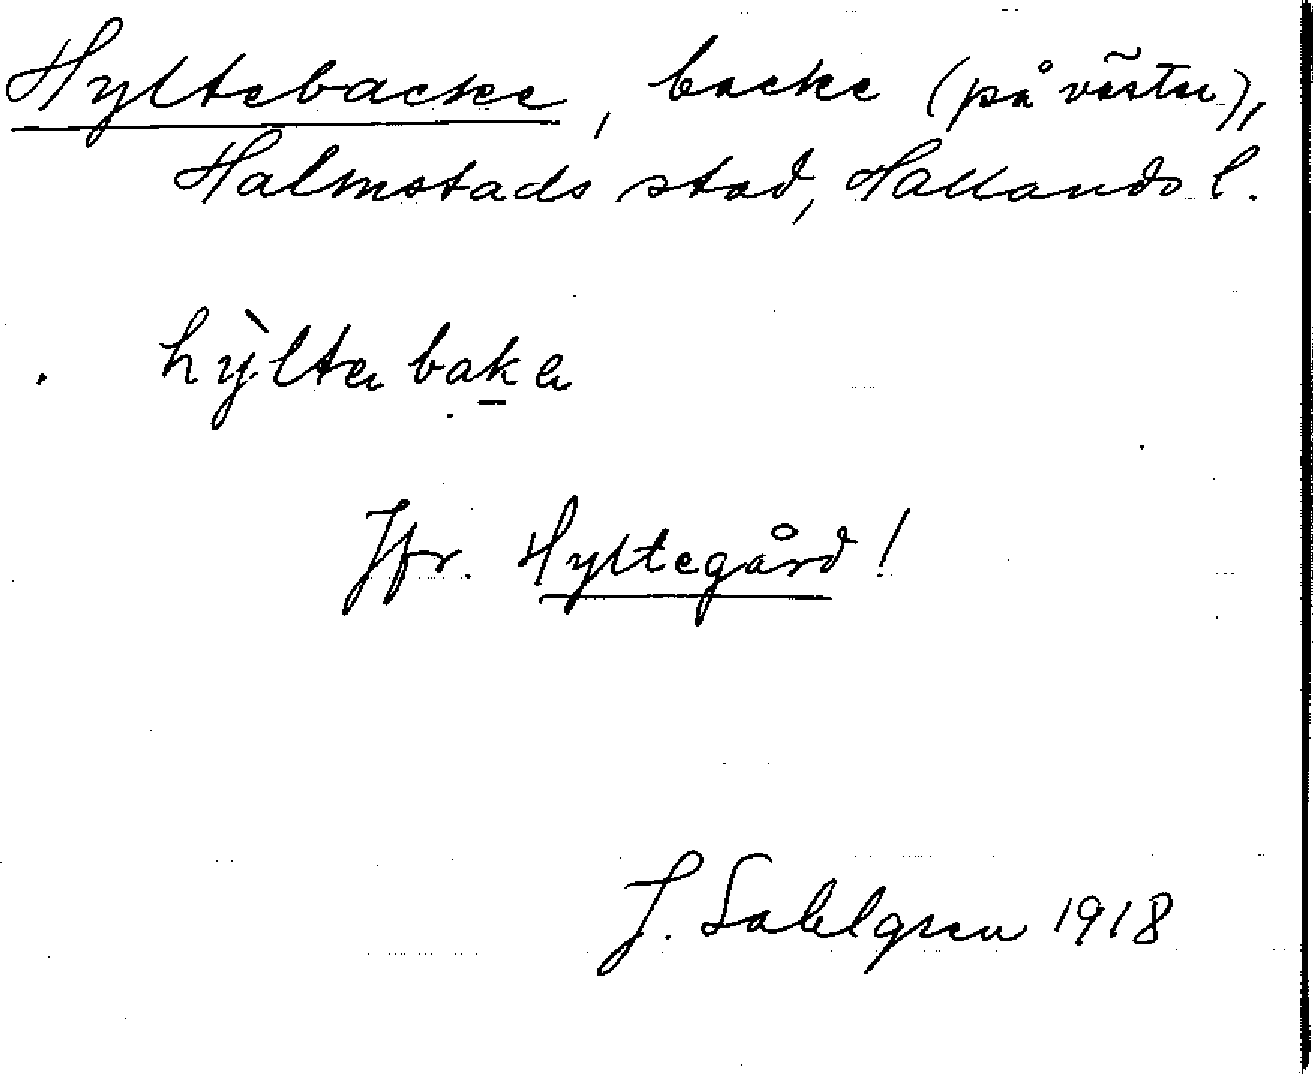 Hyltebacke, backe (på väster),
Halmstads stad, Hallands l.
hỳltabaka
Jfr. Hyltegård!
J. Sahlgren 1918